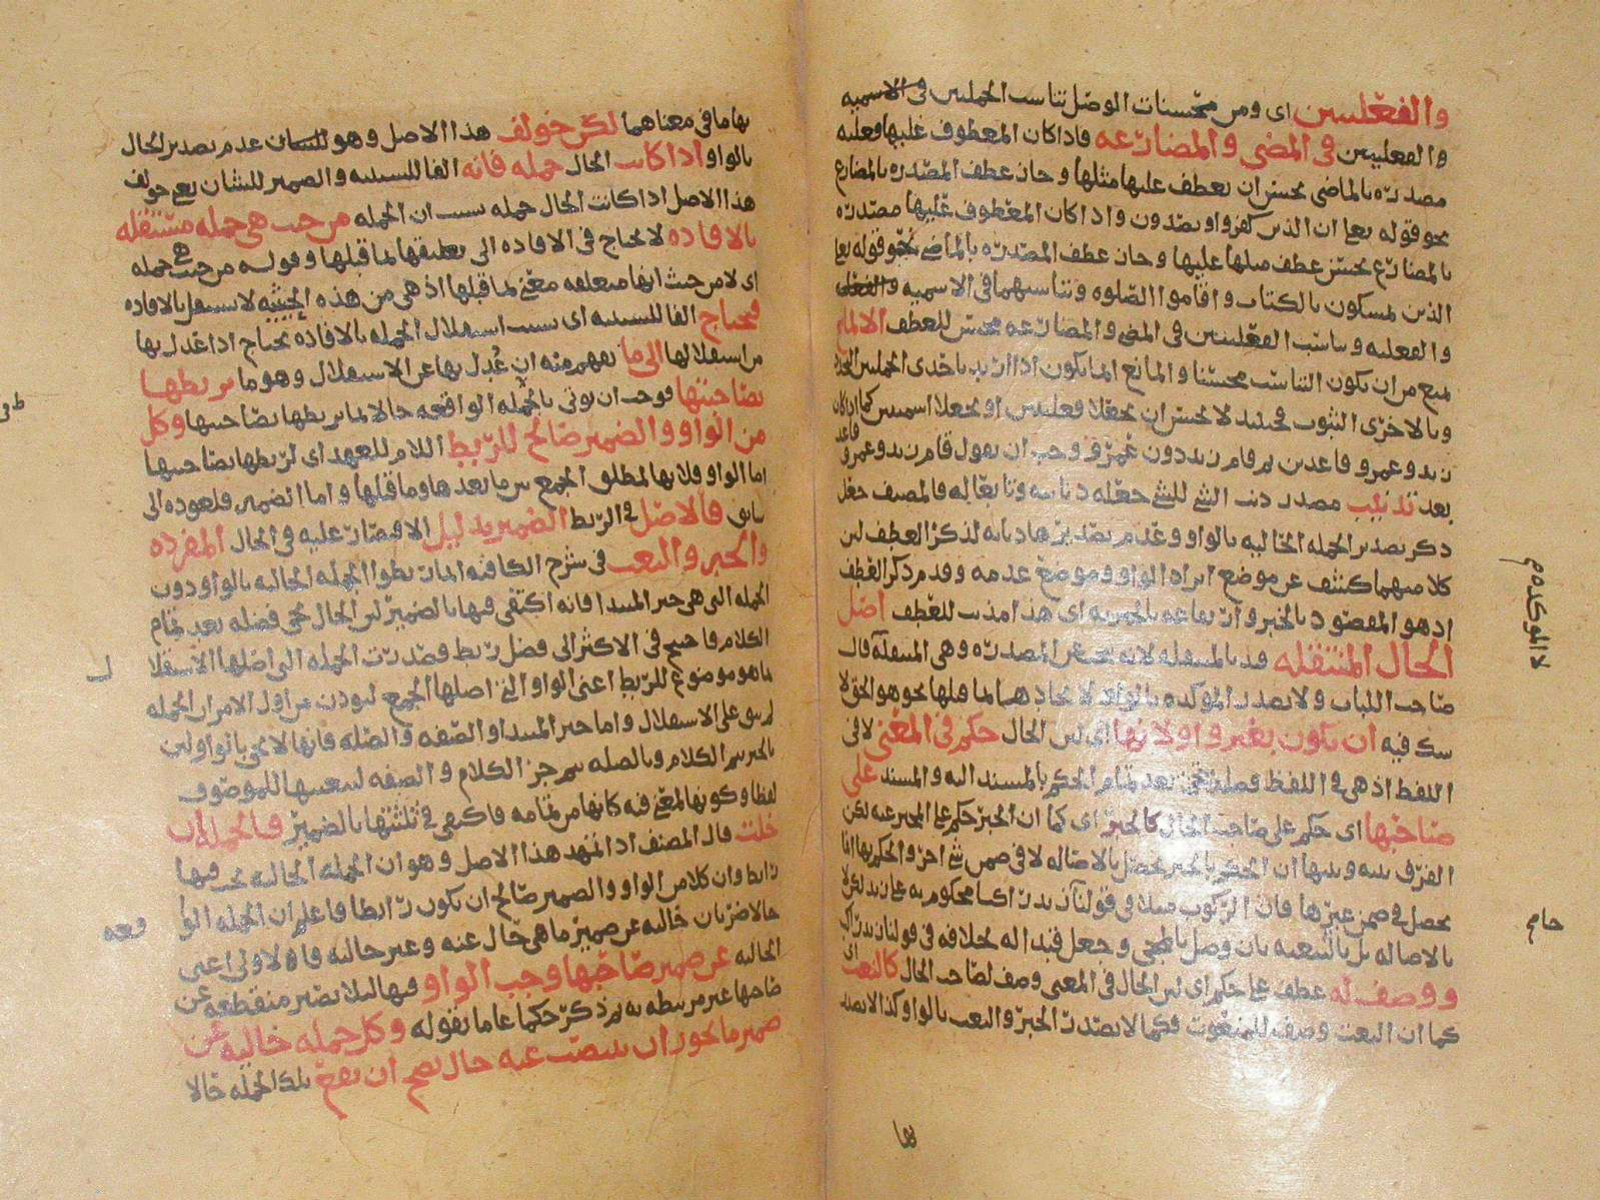 والفعليتين اى ومن محسنات الوصل تناسب الجملتين فى الاسميه
والفعليتين فى المضى والمضارعه فاذا كان المعطوف عليها فعليه
مصدره بالماضى يحسن ان يعطف عليها مثلها وحان عطف المصدره بالمضارع
نحو قوله تعا ان الذين كفروا ويصدون واذا كان المعطوف عليها مصدره
بالمضارع يحسن عطف مثلها عليها وحان عطف المصدره بالماضى نحو قوله تعا
الذين يمسكون بالكتاب واقاموا الصلوه وتناسبهما فى الاسميه
والفعليه وتناسب الفعليتين فى المضى والمضارعه محسن للعطف الا لمانع
يمنع من ان يكون التناسب محسنا والمانع انما يكون اذا اريد باحدى الجملتين التجدد
وبالاخرى الثبوت فحينئذ لا يحسن ان يجعلا فعليتين او يجعلا اسميتين كما اذا كان
زيد وعمرو قاعدين ثم قام زيد دون عمرو وجب ان يقول قام زيد وعمرو قاعد
بعد تذنيب مصدر ذنب الشئ للشئ جعله ذنابه وتابعا له فالمصنف جعل
ذكر تصدير الجمله الحاليه بالواو وعدم تصديرها به ذنابه لذكر العطف لان
كلا منهما كشف عن موضع ايراد الواو وموضع عدمه وقدم ذكر العطف
اذ هو المقصود بالخبر هذا مذنب للعطف اصل
الحال المنتقله قيد بالمنتقله لانه يحترز عن المصدره وهى المنتقله قال
صاحب اللباب ولا يصدر المؤكده بالواو لاتحادهما لما قبلها نحو هو الحق لا
شك فيه ان يكون بغير واو لانها اى لان الحال حكم فى المعنى لا فى
اللفظ اذ هى فى اللفظ فضله تجئ بعد تمام الحكم بالمسند اليه والمسند على
صاحبها اى حكم على صاحب الحال كالخبر اى كما ان الخبر حكم على المخبر عنه لكن
الفرق بينه وبينها ان الحكم بالخبر يحصل بالاصاله لا فى ضمن شئ اخر والحكم بها انما
يحصل فى ضمن غيرها فان الركوب مثلا فى قولنا زيد راكب محكوم به على زيد لكن لا
بالاصاله بل بالتبعيه بان وصل بالمجئ وجعل قيدا له بخلافه فى قولنا زيد راكب
ووصف له عطف على حكم اى لان الحال فى المعنى وصف لصاحب الحال كالنعت اى
كما ان النعت وصف للمنعوت فكما لا يصدر الخبر والنعت بالواو كذا لا يصدر
بها
لا المؤكده
بها ما فى معناهما لكن خولف هذا الاصل وهو عدم تصدير الحال
بالواو اذا كانت الحال جمله فانه الفا للسببيه والضمير للشان يعنى خولف
هذا الاصل اذا كانت الحال جمله بسبب ان الجمله من حيث هى جمله مستقله
بالافاده لا يحتاج فى الافاده الى تعليقها بما قبلها وقوله من حيث هى جمله
اى لا من حيث انها متعلقه معنى بما قبلها اذ هى من هذه الحيثيه لا تستقل بالافاده
فيحتاج الفا للسببيه اى بسبب استقلال الجمله بالافاده يحتاج اذا عدل بها
من استقلالها الى ما يفهم منه ان عدل بها عن الاستقلال وهو ما يربطها
بصاحبها فوجب ان يوتى بالجمله الواقعه حالا بما يربطها بصاحبها وكل
من الواو والضمير صالح للربط اللام للعهد اى لربطها بصاحبها
اما الواو فلانها لمطلق الجمع بين ما بعدها وما قبلها واما الضمير فلعوده الى
سابق فالاصل فى الربط الضمير بدليل الاقتصار عليه فى الحال المفرده
والخبر والنعت فى شرح الكافيه انما ربطوا الجمله الحاليه بالواو دون
الجمله التى هى خبر المبتدا فانه اكتفى فيها بالضمير لان الحال تجئ فضله بعد تمام
الكلام فاحتيج فى الاكثر الى فضل ربط فصدرت الجمله التى اصلها الاستقلال
بما هو موضوع للربط اعنى الواو التى اصلها الجمع ليوذن من اول الامر ان الجمله
لم تبق على الاستقلال واما خبر المبتدا والصفه والصله فانها لا تجئ بالواو لان
بالخبر يتم الكلام وبالصله يتم جزء الكلام والصفه لتبعيتها للموصوف
لفظا وكونها لمعنى فيه كانها من تمامه فاكتفى فى ثلثتها بالضمير فالجمله ان
خلت قال المصنف اذا تمهد هذا الاصل وهو ان الجمله الحاليه يجب فيها
رابط وان كلا من الواو والضمير صالح ان يكون رابطا فاعلم ان الجمله الواقعه
حالا ضربان خاليه عن ضمير ما هى حال عنه وغير خاليه فالاولى اعنى
الخاليه عن ضمير صاحبها وجب الواو فيها لئلا تصير منقطعه عن
صاحبها غير مرتبطه به ثم ذكر حكما عاما بقوله وكل جمله خاليه عن
ضمير ما يجوز ان ينتصب عنه حال يصح ان يقع تلك الجمله حالا